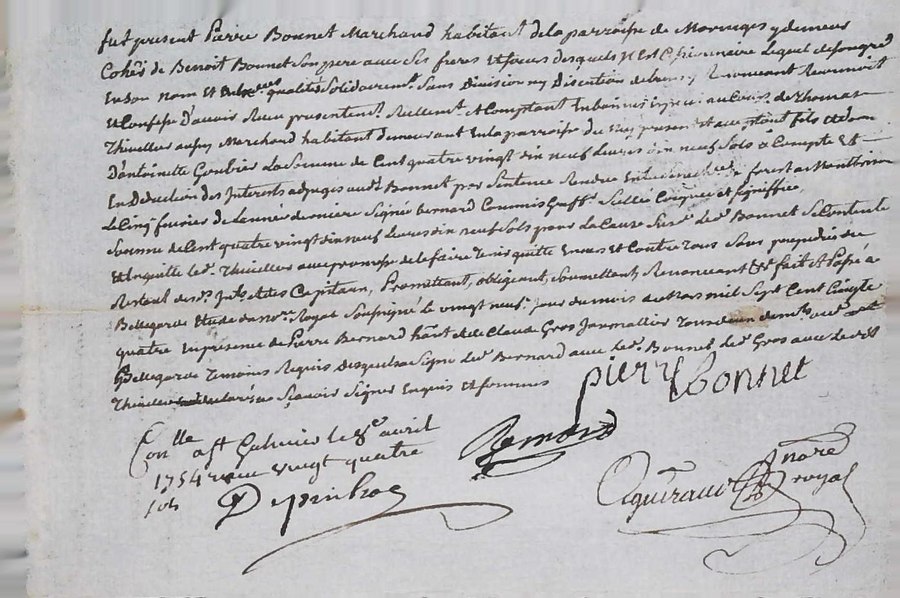 fut present Pierre Bonnet Marchand habitant de la parroisse de Maringes y demeur
Coher. de Benoit Bonnet son pere avec ses freres et soeurs desquels il est Cessionnaire lequel de son gred
En son nom et qualité solidairemt. Sans Division ny Discution de biens y Renonceant Reconnoit
et Confesse D'avoir Receu presentemt. Reellemt. et Comptant En bonnes especes au cours de Thomas
Thivellier aussy Marchand habitant demeurant En la parroisse du present et acceptant fils et don
D'antoinette Goubier La Somme de Cent quatre vingt dix neuf Livres dix neuf Sols à Compte et
En Deduction des Interests adjugés audt. Bonnet par Sentence Rendue En forest a Montbrison
Le Cinq fevrier de L'année derniere Signée bernard Commis Greffr. Sellée et Signiffiée
Somme de Cent quatre vingt dix neuf Livres dix neuf Sols pour La Cause Susd. led. Bonnet Se Contente
et En quitte led. Thivellier avec promesse de le faire Tenir quitte Envers et Contre tous Sans prejudice du
Restant desd. Intts. et des Capitaux, Promettant, obligeant, Soumettant, Renonceant &c. fait et Passé à
Bellegarde Etude du nore. Royal Soussigné le vingt neufe. jour du mois de Mars mil Sept Cent Cinqte
quatre En presence de Pierre Bernard hant. et de Claude Gros Journallier Tous deux
Bellegarde Temoins Requis desquels a Signé led. Bernard avec led. Bonnet led. Gros avec ledit
Thivellier Sçavoir Signer Enquis et sommés
Pierre Bonnet
Conlle a St Galmier le 8e avril
1754 receu vingt quatre
sols
Bernard
notre
royal